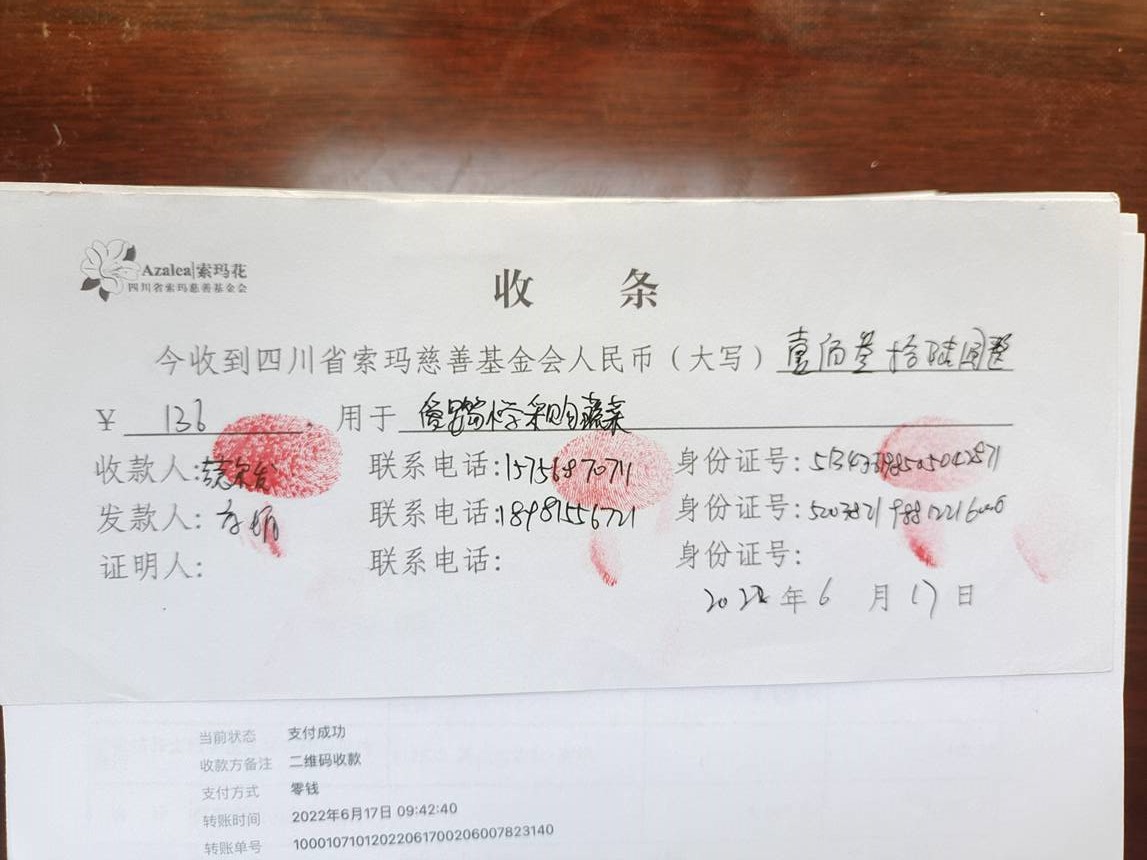 Azalea|索玛花
四川省索玛慈善基金会
收 条
今收到四川省索玛慈善基金会人民币（大写）壹佰叁拾陆圆整
￥ 136 . 用于 小学采购蔬菜
收款人: 联系电话:15756870711 身份证号:
发款人: 联系电话:18981556721 身份证号:
证明人: 联系电话: 身份证号:
2022年6月17日
当前状态 支付成功
收款方备注 二维码收款
支付方式 零钱
转账时间 2022年6月17日 09:42:40
转账单号 10001071012022061700206007823140